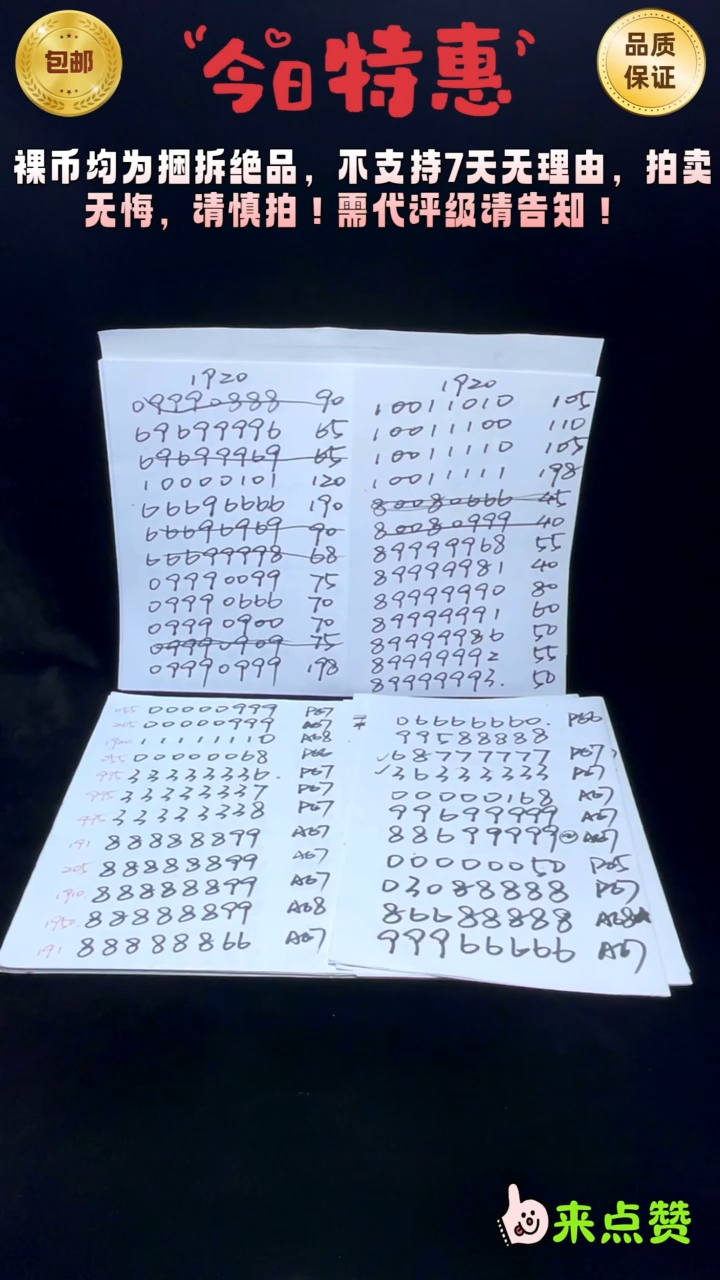 包邮
今日特惠
品质
保证
裸币均为捆拆绝品，不支持7天无理由，拍卖
无悔，请慎拍！需代评级请告知！
1920
09990888 90
69699996 65
69699969 65
10000101 120
66696666 190
66696969 90
66699998 68
09990099 75
09990666 70
09990900 70
09990909 75
09990999 198
1920
10011010 105
10011100 110
10011110 105
10011111 198
80080666 45
80080999 40
89999968 55
89999981 40
89999990 80
89999991 60
89999986 50
89999992 55
89999993. 50
00000999 P67
205 00000999 A67
11111110 A68
00000068 P66
995 33333336. P67
995 33333337 P67
995 33333338 P67
191 88888899 A67
205 88888899 A67
1910. 88888899 A67
1950. 88888899 A68
191 88888866 A67
06666660. P66
99588888
✓68777777 P67
✓36333333 P67
00000168 A67
99699999 A67
88699999 A67
00000050 P65
03088888 P67
86688888 A68
99966666 A67
来点赞